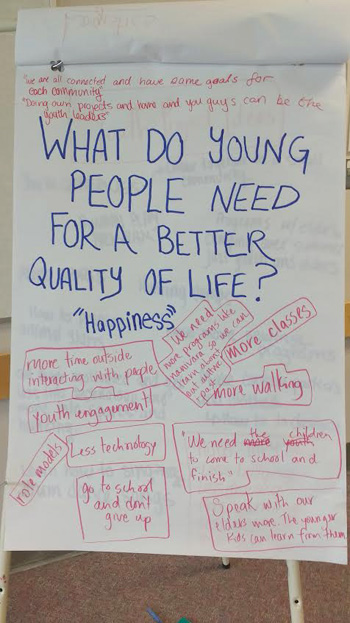 "we are all connected and have same goals for
each community"
"Doing own projects and home and you guys can be the
youth leaders"
WHAT DO YOUNG
PEOPLE NEED
FOR A BETTER
QUALITY OF LIFE?
"Happiness"
We need
more programs like
so we can
learn about
our
past
more classes
more time outside
interacting with people
more walking
youth engagement
role models
Less technology
"We need the children
more youth
to come to school and
finish"
go to school
and don't
give up
Speak with our
elders more. The younger
kids can learn from them